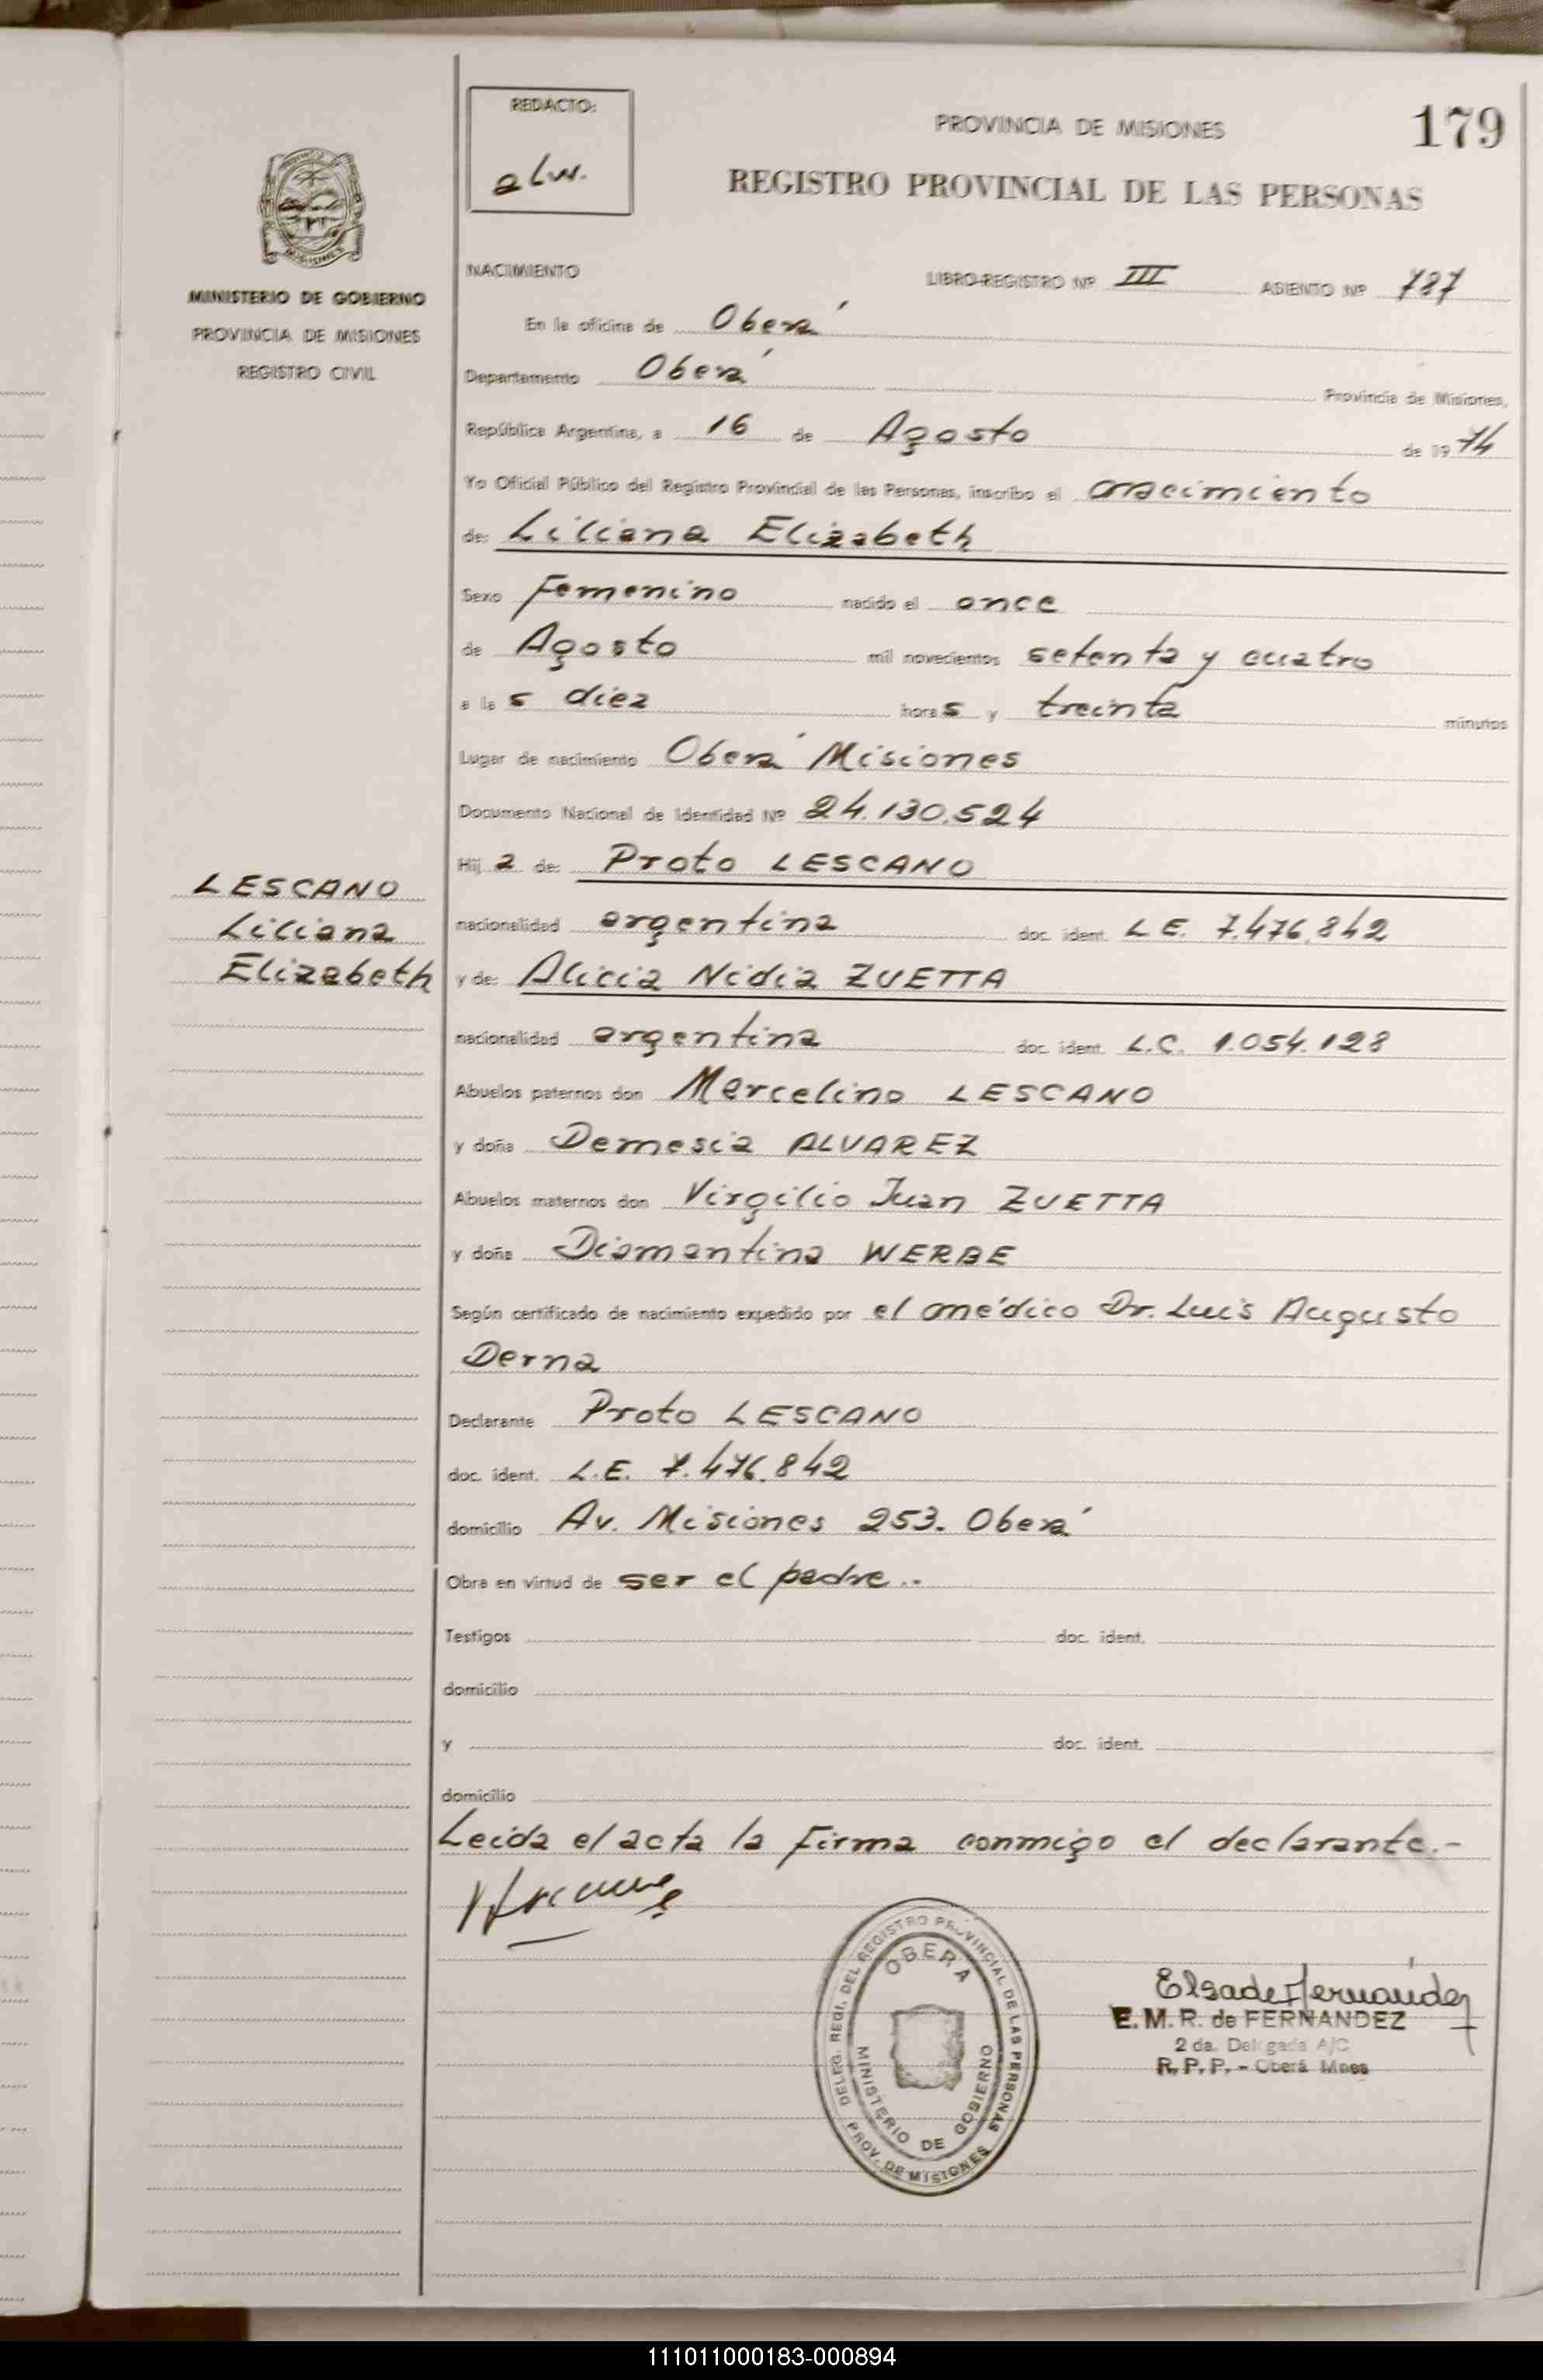 REDACTO:
alw.
PROVINCIA DE MISIONES
179
REGISTRO PROVINCIAL DE LAS PERSONAS
MISIONES
MINISTERIO DE GOBIERNO
PROVINCIA DE MISIONES
REGISTRO CIVIL
NACIMIENTO LIBRO-REGISTRO Nº III ASIENTO Nº 787
En la oficina de Oberá
Departamento Oberá Provincia de Misiones,
República Argentina, a 16 de Agosto de 1974
Yo Oficial Público del Registro Provincial de las Personas, inscribo el nacimiento
de: Liliana Elizabeth
Sexo Femenino nacido el once
de Agosto mil novecientos setenta y cuatro
a las diez horas y treinta minutos
Lugar de nacimiento Oberá Misiones
Documento Nacional de Identidad Nº 24.130.524
Hija de: Proto LESCANO
LESCANO
Liliana
Elizabeth
nacionalidad argentina doc. ident. L E. 7.476.842
y de: Alicia Nidia ZUETTA
nacionalidad argentina doc. ident. L.C. 1.054.128
Abuelos paternos don Marcelino LESCANO
y doña Demesia ALVAREZ
Abuelos maternos don Virgilio Juan ZUETTA
y doña Diamantina WERBE
Según certificado de nacimiento expedido por el médico Dr. Luis Augusto
Derna
Declarante Proto LESCANO
doc. ident. L.E. 7.476.842
domicilio Av. Misiones 253. Oberá
Obra en virtud de ser el padre..
Testigos doc. ident.
domicilio
y doc. ident.
domicilio
Leida el acta la firma conmigo el declarante.-
DELEG. REGI. DEL REGISTRO PROVINCIAL DE LAS PERSONAS
OBERA
MINISTERIO DE GOBIERNO
PROV. DE MISIONES
Elsa de Fernández
E. M. R. de FERNANDEZ
2 da. Delegada A/C
R. P. P. - Oberá Mnes
111011000183-000894